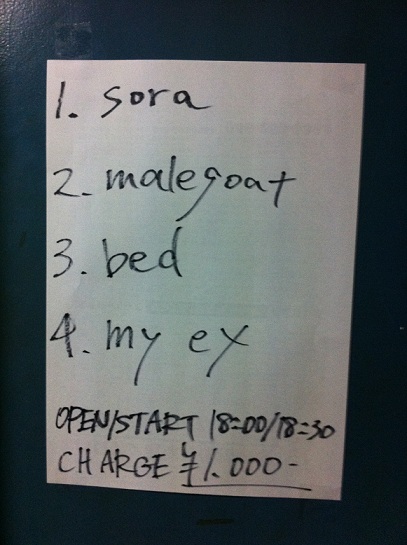 1. sora
2. malegoat
3. bed
4. my ex
OPEN/START 18:00/18:30
CHARGE ¥1.000-